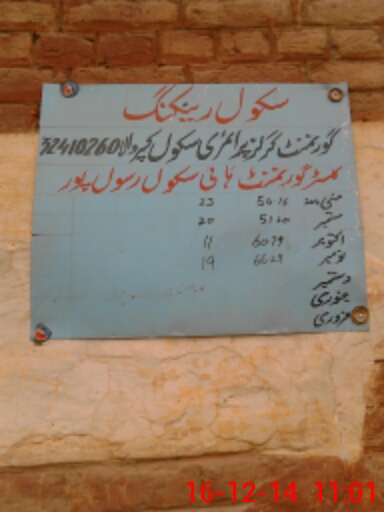 سکول رینکنگ
گورنمنٹ گرلز پرائمری سکول کیروالا 32410260
کلسٹر گورنمنٹ ہائی سکول رسول پور
23 50.16 مئی
ستمبر 51.20 20
اکتوبر 60.79 11
نومبر 66.29 19
دسمبر
جنوری
فروری
16-12-14 11:01